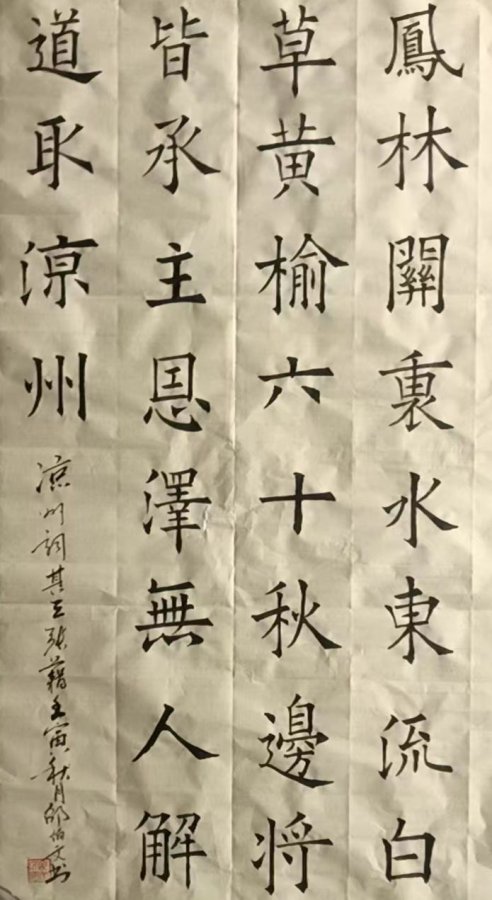 鳳林關裏水東流白
草黄榆六十秋邊將
皆承主恩澤無人解
道取涼州
凉州詞其三張籍壬寅秋月邱伯文書